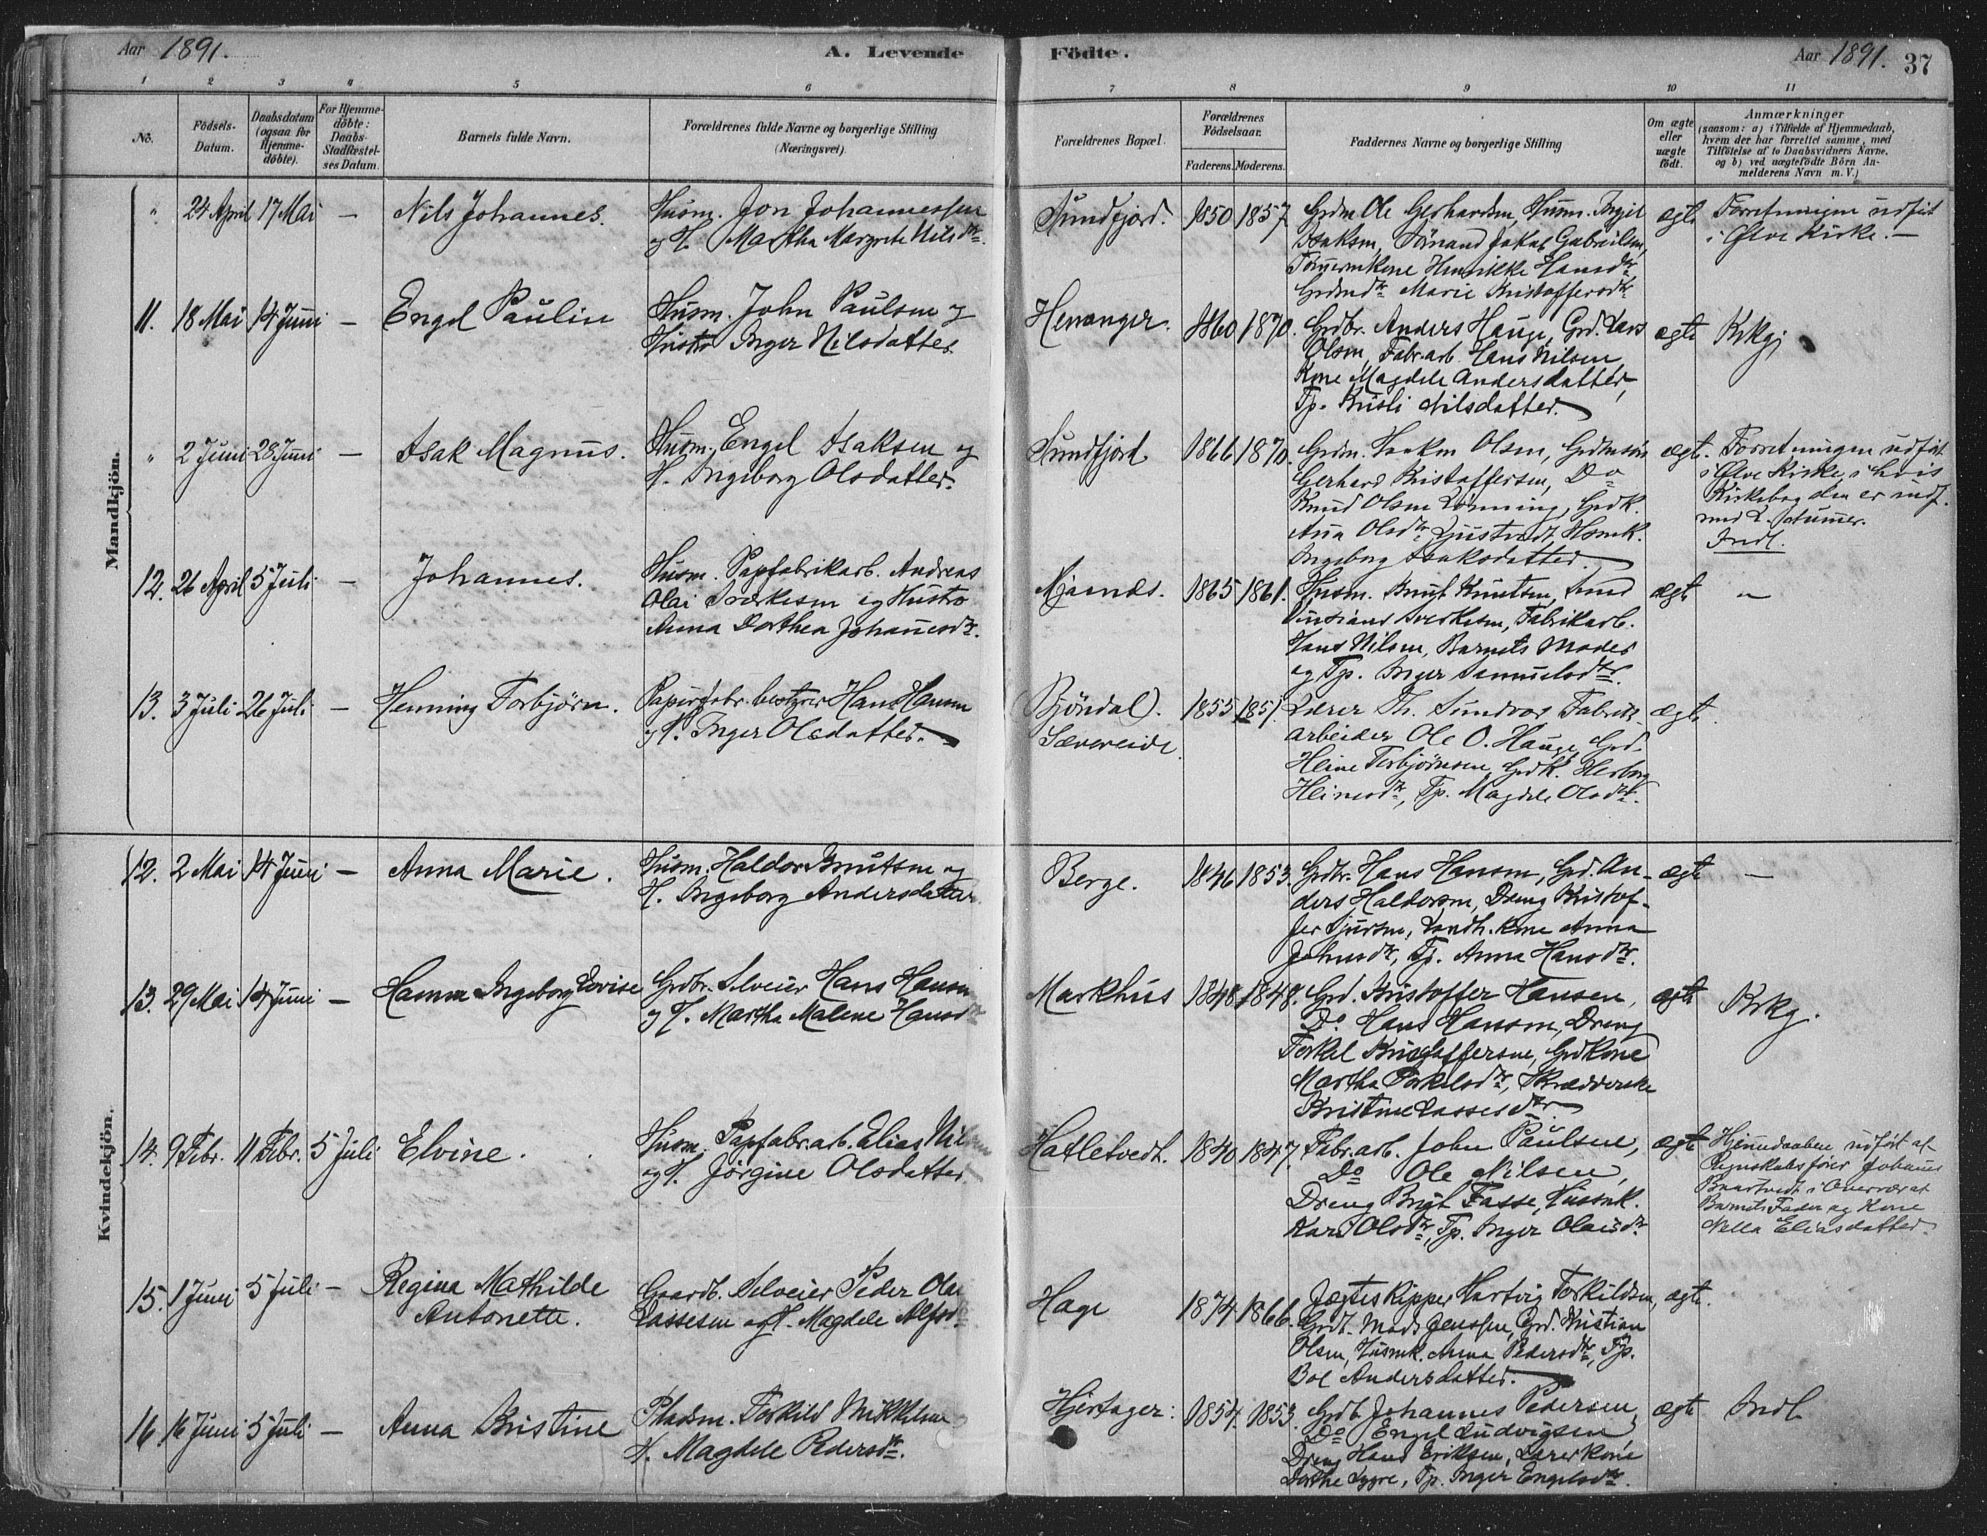 Aar 1891. A. Levende Födte. Aar 1891. 37
1 2 3 4 5 6 7 8 9 10 11
No. Födsels-Datum. Daabsdatum (ogsaa for Hjemme-döbte). For Hjemme-döbte: Daabs-Stadfæstel-ses Datum. Barnets fulde Navn. Forældrenes fulde Navne og borgerlige Stilling (Næringsvei) Forældrenes Bopæl. Forældrenes Födselsaar. Faderens. Moderens. Faddernes Navne og borgerlige Stilling Om ægte eller uægte födt. Anmærkninger (saasom: a) i Tilfælde af Hjemmedaab, hvem der har forrettet samme, med Tilföielse af to Daabsvidners Navne, og b) ved uægtefödte Börn An-melderens Navn m. V.)
Mandkjön.
" 24 April 17 Mai – Nils Johannes.
Husm. Jon Johannessen
og H. Martha Margrete Nilsdtr.
Sundfjord. 1850 1857
Grdm Ole Gerhardsen, Husm. Ingjel
Isaksen, Jakob Gabrielsen,
Henrikke Hansdtr,
Marie Kristoffersdtr
ægte Forretningen udført
i Ølve Kirke. –
11. 18 Mai 14 Juni – Engel Paulin
Husm. John Paulsen og
Hustro Inger Nilsdatter
Henanger. 1860 1870.
Grdbr. Anders Hauge, Grd. Lars
Olsen, Fabr.arb. Hans Nilsen,
Kone Magdele Andersdatter,
Tp. Kristi Nilsdatter.
ægte Krkgj
" 2 Juni 28 Juni – Isak Magnus.
Husm. Engel Isaksen og
H. Ingeborg Olsdatter.
Sundfjord 1866 1870.
Grdm. Haakon Olsen, Grdmsøn
Gerhard Kristoffersen, Do
Knud Olsen Lønning, GrdK.
Ana Olsdtr Ljustvedt, Husmk.
Ingeborg Isaksdatter.
ægte. Forretningen udført
i Ølve Kirke, i hvis
Kirkebog den er indf.
med L. Numer.
Indl.
12. 26 April 5 Juli – Johannes.
Husm. Papfabrikarb. Andreas
Olai Sverkesen og Hustro
Anna Dorthea Johannesdtr.
1865 1861.
Husm. Knut Knutsen,
Sverkesen, Fabrikarb.
Hans Nilsen, Barnets Moder
og Tp. Inger Samuelsdtr.
ægte –
13. 3 Juli 26 Juli – Henning Torbjørn.
Papirfabr. bestyrer Hans Hansen
og H. Inger Olsdatter.
Bjöndal).
Sævereide.
1855 1857.
Lærer Th. Sundvor Fabrik-
arbeider Ole O. Hauge, Grd.
Heine Torbjørnsen, GrdK. Herborg
Heinesdtr, Tp. Magdele Olsdtr.
ægte.
Kvindekjön.
12. 2 Mai 14 Juni – Anna Marie.
Husm. Haldor Knutsen og
H. Ingeborg Andersdatter
Berge. 1846 1853.
Grdbr. Hans Hansen, Grd. An-
ders Haldorsen, Dreng Kristof-
fer Sjursen, Landh. Kone Anna
Johnsdtr, Tp. Anna Hansdtr.
ægte –
13. 29 Mai 14 Juni – Hanna Ingeborg Lovise
Grdbr. Selveier Hans Hansen
og H. Martha Malene Hansdtr
Markhus 1848. 1848.
Grd. Kristoffer Hansen,
Do Hans Hansen, Dreng
Torkel Kristoffersen, GrdKone
Martha Torkelsdtr, Skrædderske
Kristine Lassesdtr.
ægte Krkg.
14. 9 Febr. 11 Febr. 5 Juli Elvine.
Husm. Papfabr.arb. Elias Nilsen
og H. Jörgine Olsdatter
Hatletvedt. 1840 1847.
Fabr.arb. John Paulsen,
Do Ole Nilsen,
Dreng Brigt Tasse, Husmk.
Kari Olsdtr, Tp. Inger Olausdtr
ægte Hjemmedaaben udført af
Regnskabsfører Johannes
i Overvær af
Barnets Fader og Kone
Nella Eliasdatter.
15. 1 Juni 5 Juli – Regina Mathilde
Antonette.
Gaardb. Selveier Peder Olai
Lassesen og H. Magdele Alfsdtr
Hage 1874 1866.
Jægteskipper Hartvig Torkildsen,
Grdb. Mads Jenssen, Grd. Kristian
Olsen, Husmk. Anna Pedersdtr, Tp.
Boe Andersdatter.
ægte.
16 16 Juni 5 Juli – Anna Kristine
Pladsm. Torkild Mikkelsen
H. Magdele Pedersdtr.
Hjertager: 1854. 1853.
Grdb. Johannes Pedersen,
Do Engel Ludvigsen
Dreng Hans Eriksen, Lærerkone
Dorthe Lygre, Tp. Inger Engelsdtr.
ægte Indl